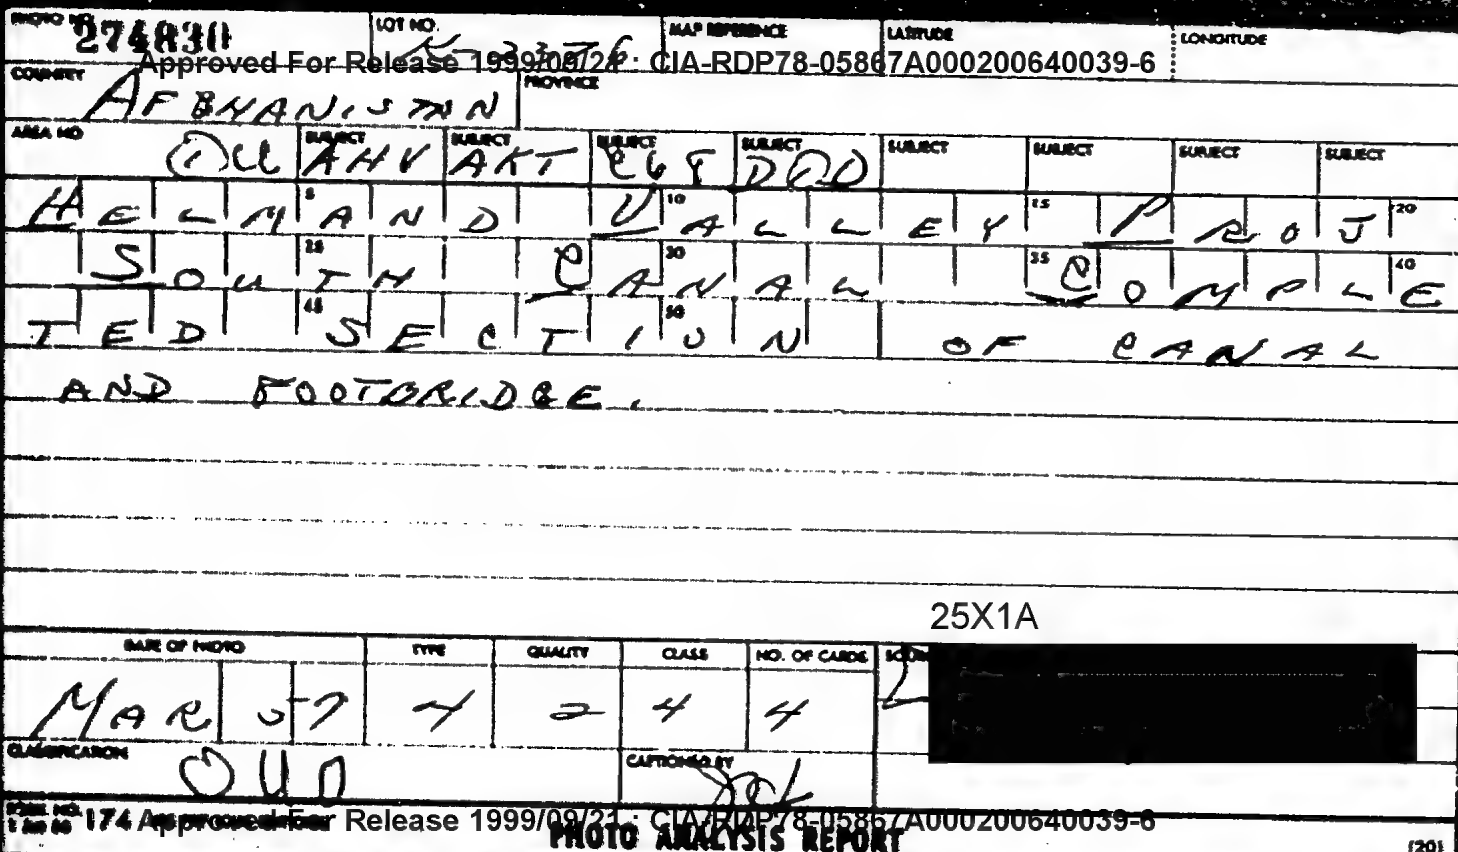 PHOTO NO. 274830 LOT NO. MAP REFERENCE LATITUDE LONGITUDE
Approved For Release 1999/09/21 : CIA-RDP78-05867A000200640039-6
COUNTRY AFGHANISTAN PROVINCE
AREA NO SUBJECT AHV SUBJECT AKT SUBJECT SUBJECT SUBJECT SUBJECT SUBJECT SUBJECT
HELMAND VALLEY PROJ
5 10 15 20
SOUTH CANAL COMPLE
25 30 35 40
TED SECTION OF CANAL
45 50
AND FOOTBRIDGE.
25X1A
DATE OF PHOTO TYPE QUALITY CLASS NO. OF CARDS
MAR 57 4 2 4 4
CLASSIFICATION OUO CAPTIONED BY
FORM NO. 174 Approved For Release 1999/09/21 : CIA-RDP78-05867A000200640039-6
PHOTO ANALYSIS REPORT (20)